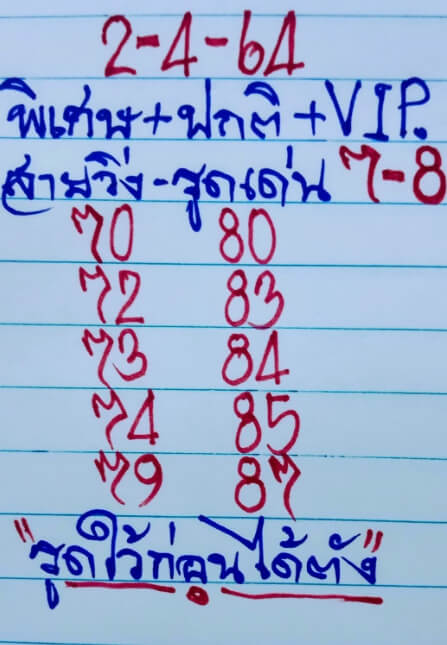 2-4-64
พิเศษ+ปกติ+VIP.
สายวิ่ง-รูดเด่น 7-8
70 80
72 83
73 84
74 85
79 87
"รูดใว้ก่อนได้ตัง"